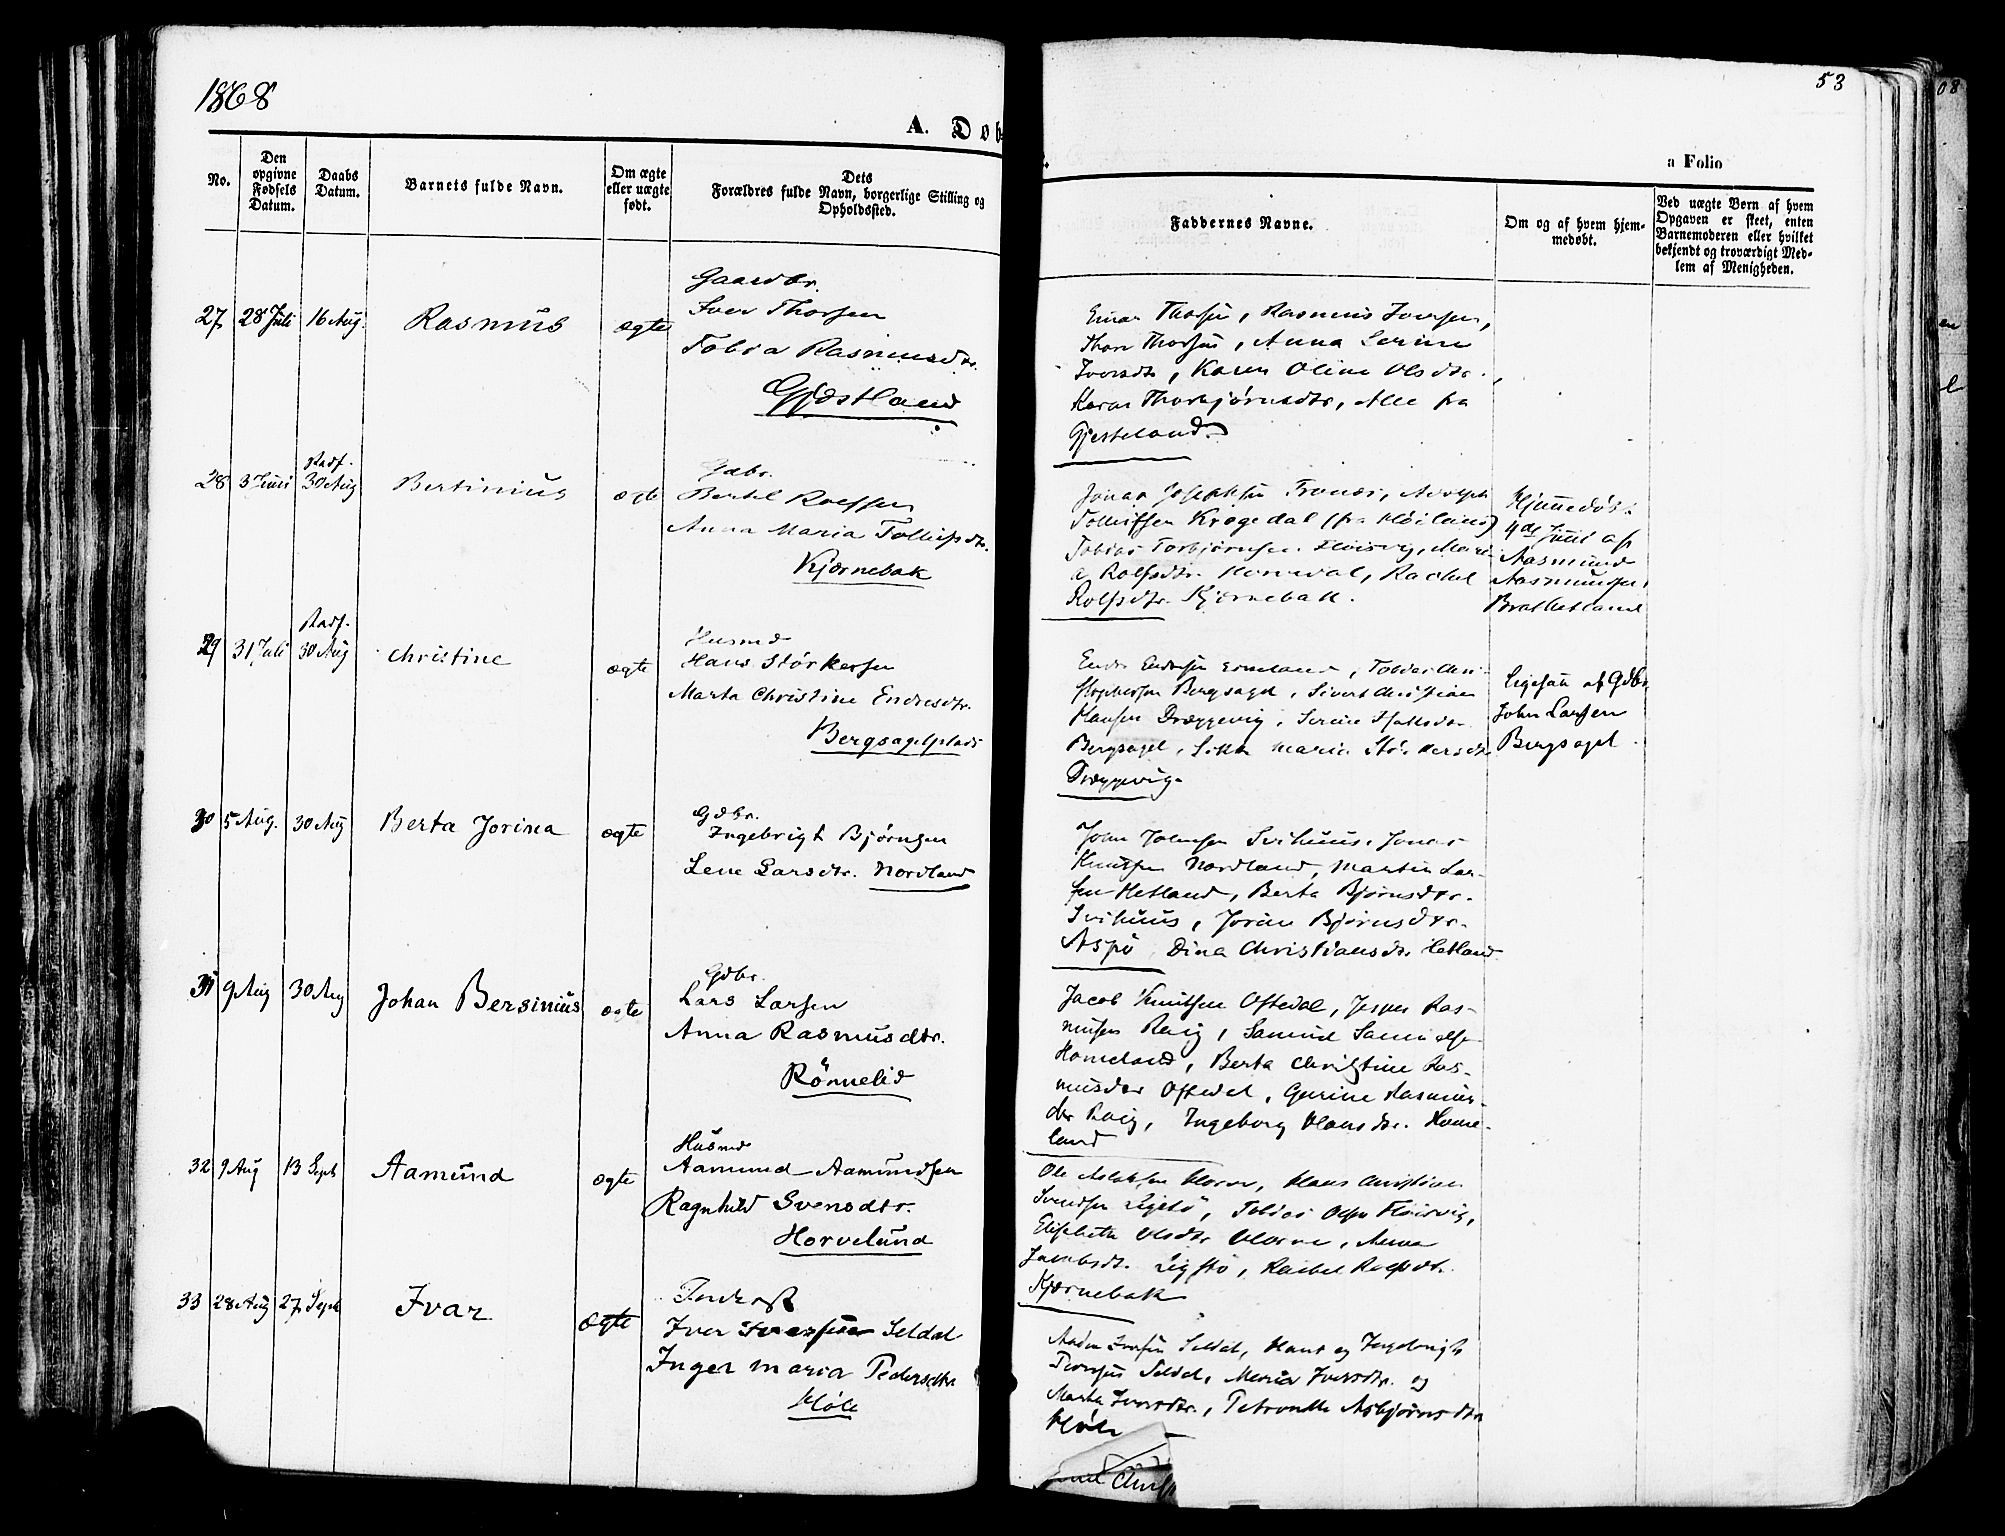 1868
53
08
A. Dob
a Folio
No.
Den opgivne Fødsels Datum.
Daabs Datum.
Barnets fulde Navn.
Om ægte eller uægte født.
Dets Forældres fulde Navn, borgerlige Stilling og Opholdssted.
Faddernes Navne.
Om og af hvem hjemmedøbt.
Ved uægte Børn af hvem Opgaven er skeet, enten Barnemoderen eller hvilket bekjendt og troværdigt Medlem af Menigheden.
27 28 Juli 16 Aug. Rasmus ægte
Gaardbr.
Iver Thorsen
Tobia Rasmusdtr.
Gjestland
Einar Thorsen, Rasmus Iversen,
Thore Thorsen, Anna Serine
Iversdtr, Karen Oline Olsdtr.,
Karen Thorbjørnsdtr, Alle fra
Gjesteland.
28 3 Juni Radf. 30 Aug Bertinius ægte
Gdbr.
Bertel Rolfsen
Anna Maria Tollefsdtr.
Kjørnebak
Jonas Josephsen Tronæs, Adolph
Tollefsen Krogedal (fra Høiland)
Tobias Torbjørnsen Høisvig, Mari-
a Rolfsdtr. , Rachel
Rolfsdtr. Kjørnebak.
Hjemmedøbt
4de Juni af
Aasmund
Aasmundsen
Brathetland
29 31 Juli Radf. 30 Aug Christine ægte
Husmd
Hans Størkersen
Marta Christine Endresdtr.
Bergsagelplads
Endre Endresen , Tobias Chri-
stophersen Bergsagel, Sivert Christian
Hansen Dræggevig, Serine
Bergsagel, Maria Størkersdtr
Dræggevig.
ligesaa af Gdbr.
John Larsen
Bergsagel.
30 5 Aug. 30 Aug Berta Jorina ægte
Gdbr.
Ingebrigt Bjørnsen
Lene Larsdtr. Nordland
John Johnsen Svihuus, Jonas
Knutsen Nordland, Martin Lar-
sen Hetland, Berta Bjørnsdtr.
Svihuus, Jorine Bjørnsdtr.
Aspø, Dina Christiansdtr. Hetland
31 9 Aug 30 Aug Johan Bersinius ægte
Gdbr.
Lars Larsen
Anna Rasmusdtr.
Rønnelid
Jacob Knutsen Oftedal, Jesper Ras-
musen Røig, Samuel Samuels.
Homeland, Berta Christine Ras-
musdtr Oftedal, Gurine Rasmus-
dtr Røig, Ingeborg Hansdtr. Home-
land
32 9 Aug 13 Sept Aamund ægte
Husmd
Aamund Aamundsen
Ragnhild Svensdtr.
Horvelund
Ole Aslaksen Horve, Hans Christian
Svendsen Ligstø, Tobias Olsen Høisvig,
Elisabeth Olsdtr Horve, Anna
Jacobsdt. Ligstø, Rachel Rolfsdt.
Kjørnebak
33 28 Aug 27 Sept Ivar ægte
Inderst
Iver Iversen Seldal
Inger Maria Pedersdtr.
Høle
Iversen Seldal, Hans og Ingebrigt
Iversen Seldal, Maria Iversdtr. og
Marta Iversdtr., Petronille Asbjørnsdtr
Høle